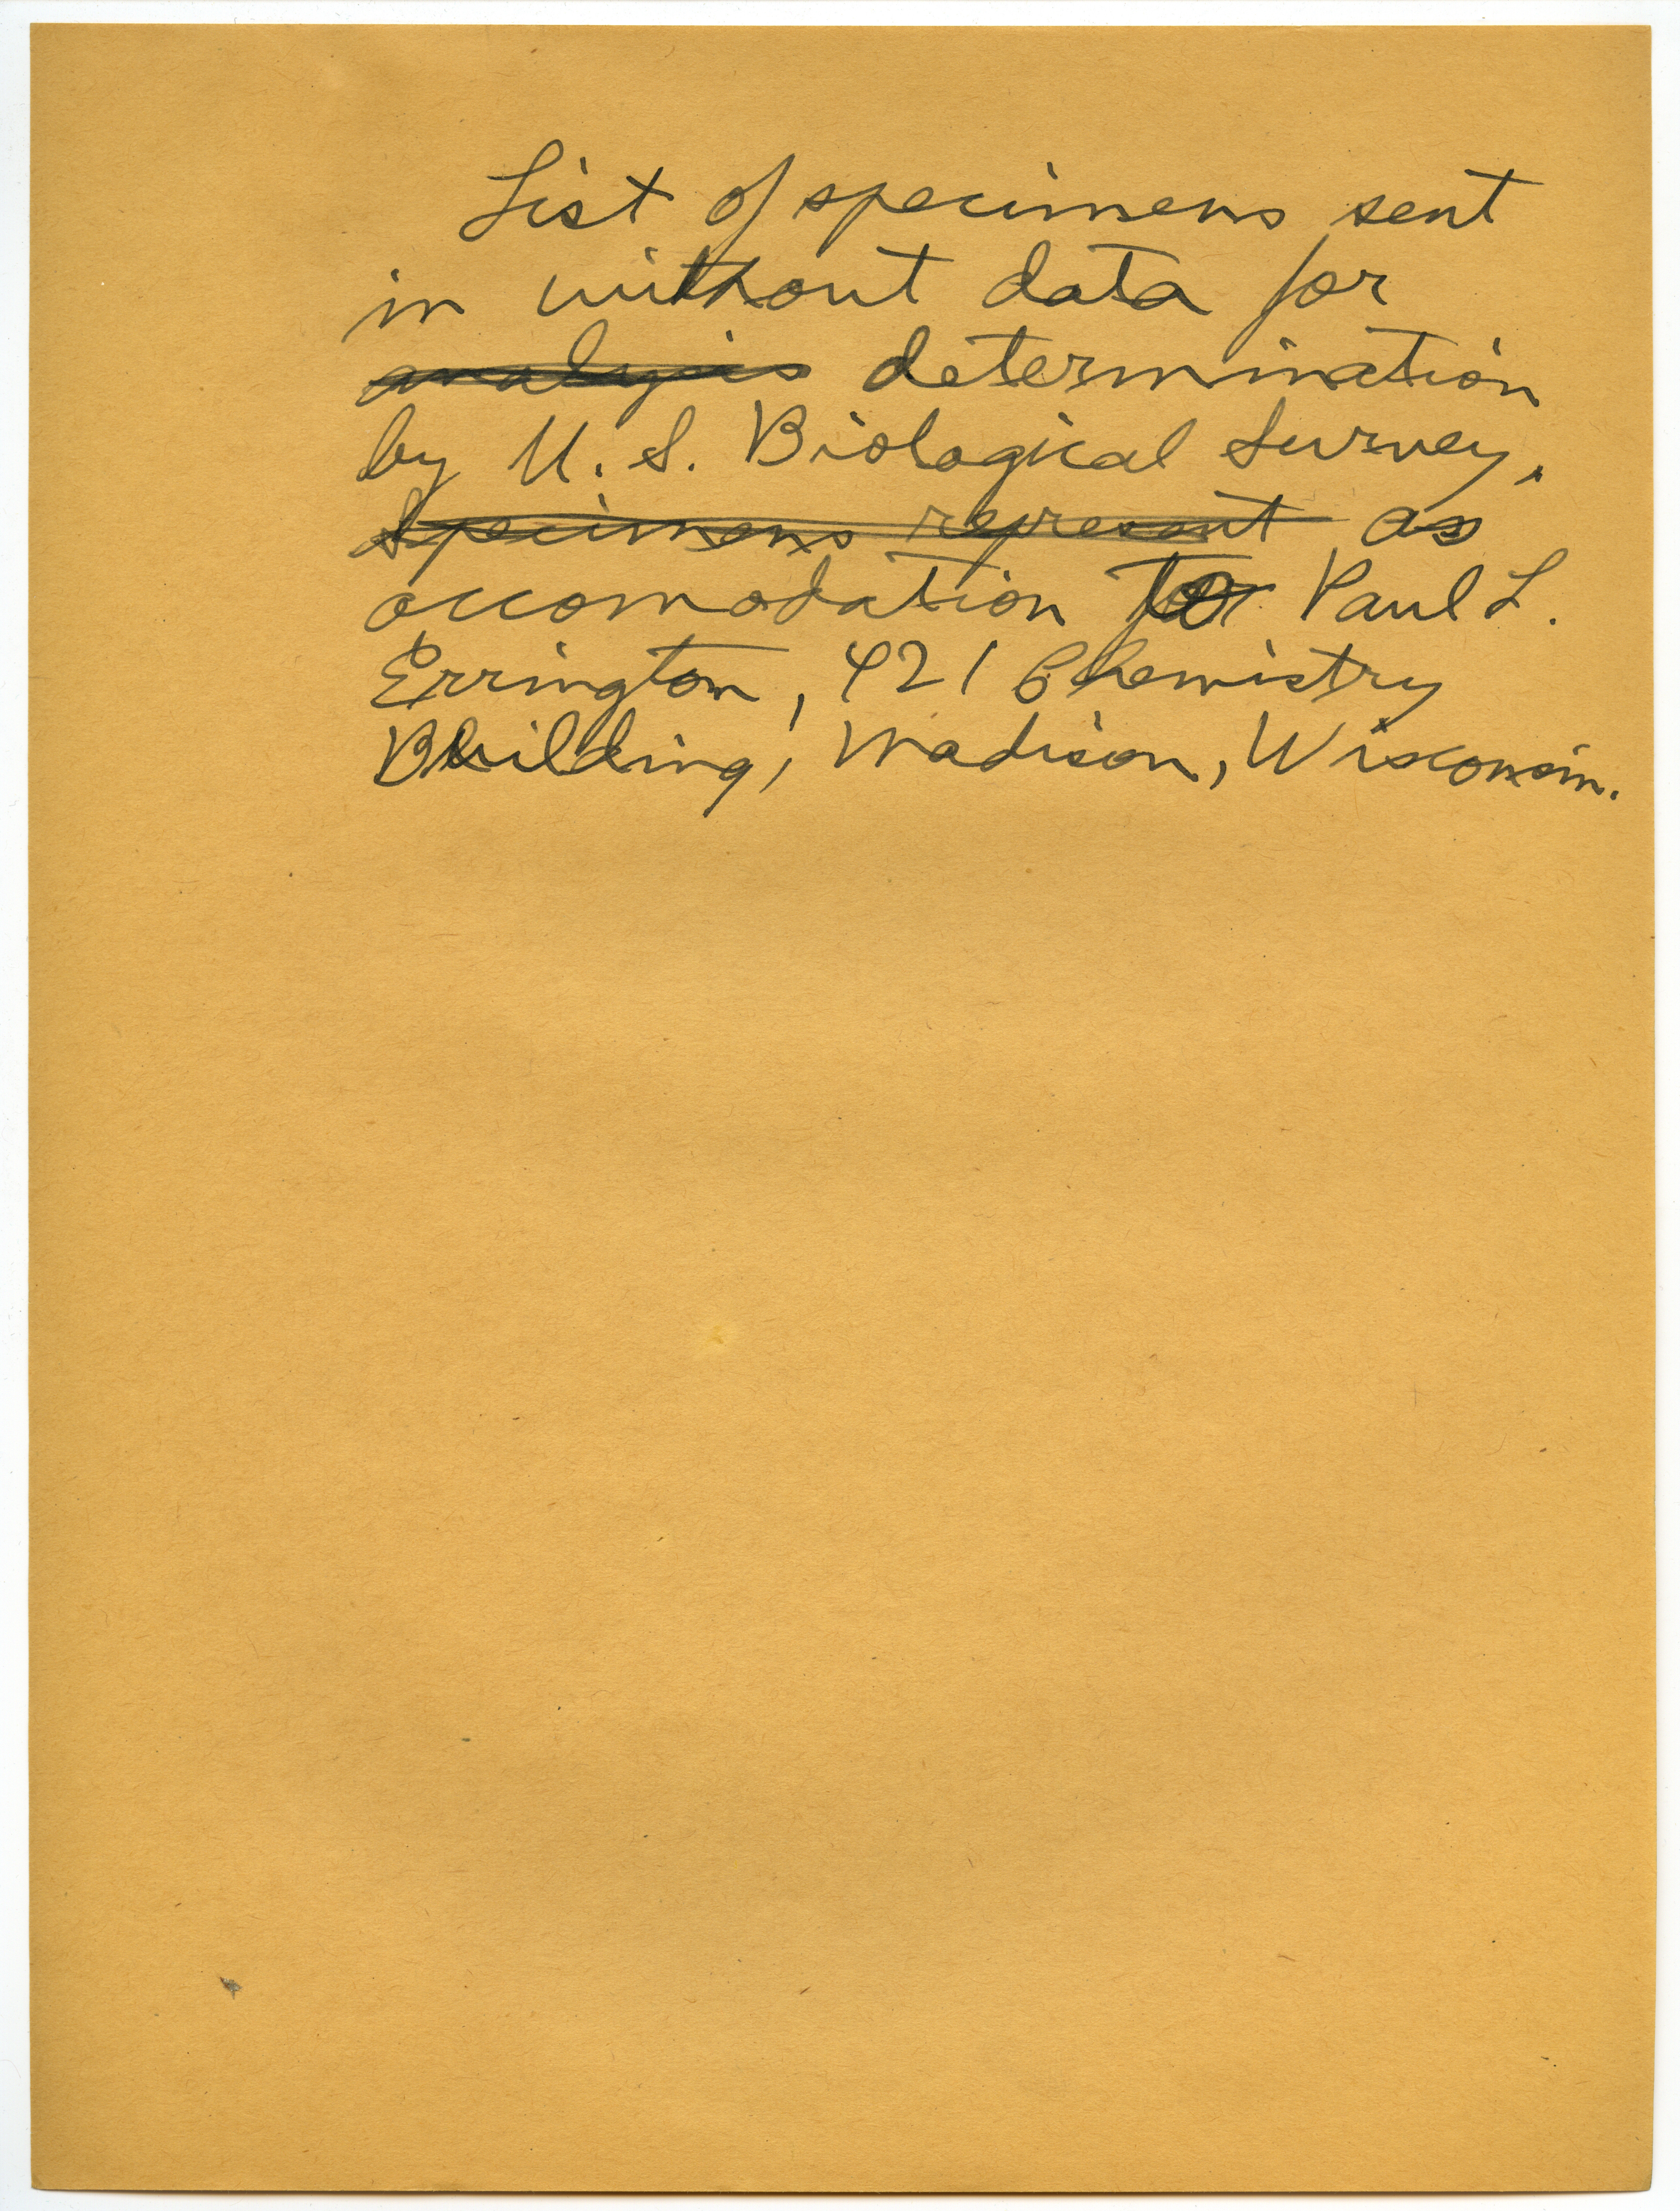 List of specimens sent
in without data for
analysis determination
by U. S. Biological Survey,
Specimens represent as
accomodation to Paul L.
Errington, 421 Chemistry
Building, Madison, Wisconsin.